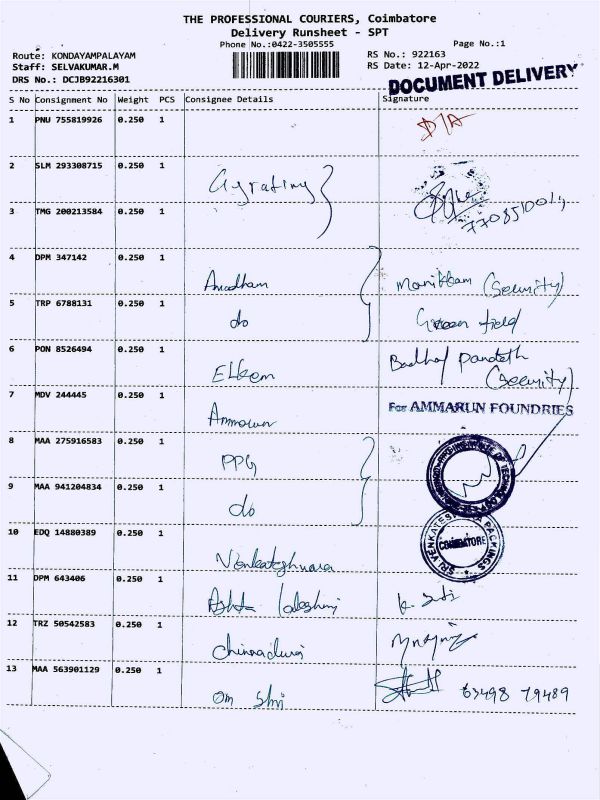 THE PROFESSIONAL COURIERS, Coimbatore
Delivery Runsheet - SPT
Phone No.:0422-3505555
Page No.:1
Route: KONDAYAMPALAYAM
RS No.: 922163
Staff: SELVAKUMAR.M
RS Date: 12-Apr-2022
DRS No.: DCJB92216301
DOCUMENT DELIVERY
S No Consignment No Weight PCS Consignee Details Signature
1 PNU 755819926 0.250 1 D/A
2 SLM 293308715 0.250 1
3 TMG 200213584 0.250 1
4 DPM 347142 0.250 1 Manikkam (Security)
5 TRP 6788131 0.250 1 do Green field
6 PON 8526494 0.250 1 (Security)
7 MDV 244445 0.250 1 For AMMARUN FOUNDRIES
8 MAA 275916583 0.250 1 PPG
9 MAA 941204834 0.250 1 do
10 EDQ 14880389 0.250 1 COIMBATORE
11 DPM 643406 0.250 1
12 TRZ 50542583 0.250 1 Chinnadurai
13 MAA 563901129 0.250 1 Om Shri 63498 79489